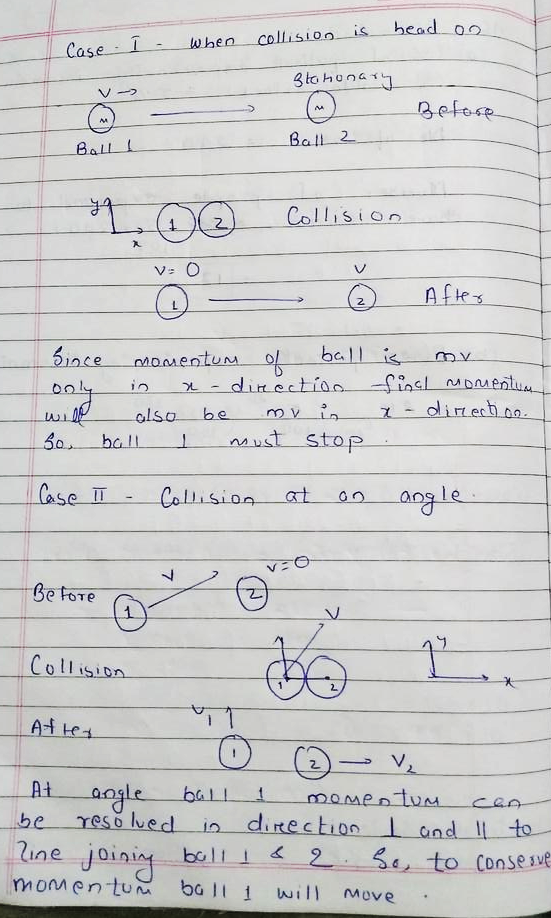 Case - I - when collision is head on
v → Stationary
m m Before
Ball 1 Ball 2
y x 1 2 Collision
v = 0 v
1 2 After
Since momentum of ball is mv
only in x - direction final momentum
will also be mv in x - direction.
So, ball 1 must stop.
Case II - Collision at an angle.
Before 1 v 2 v=0
Collision 1 2 v y x
After v1 1 2 → V2
At angle ball 1 momentum can
be resolved in direction ⊥ and || to
line joining ball 1 & 2. So, to conserve
momentum ball 1 will move.